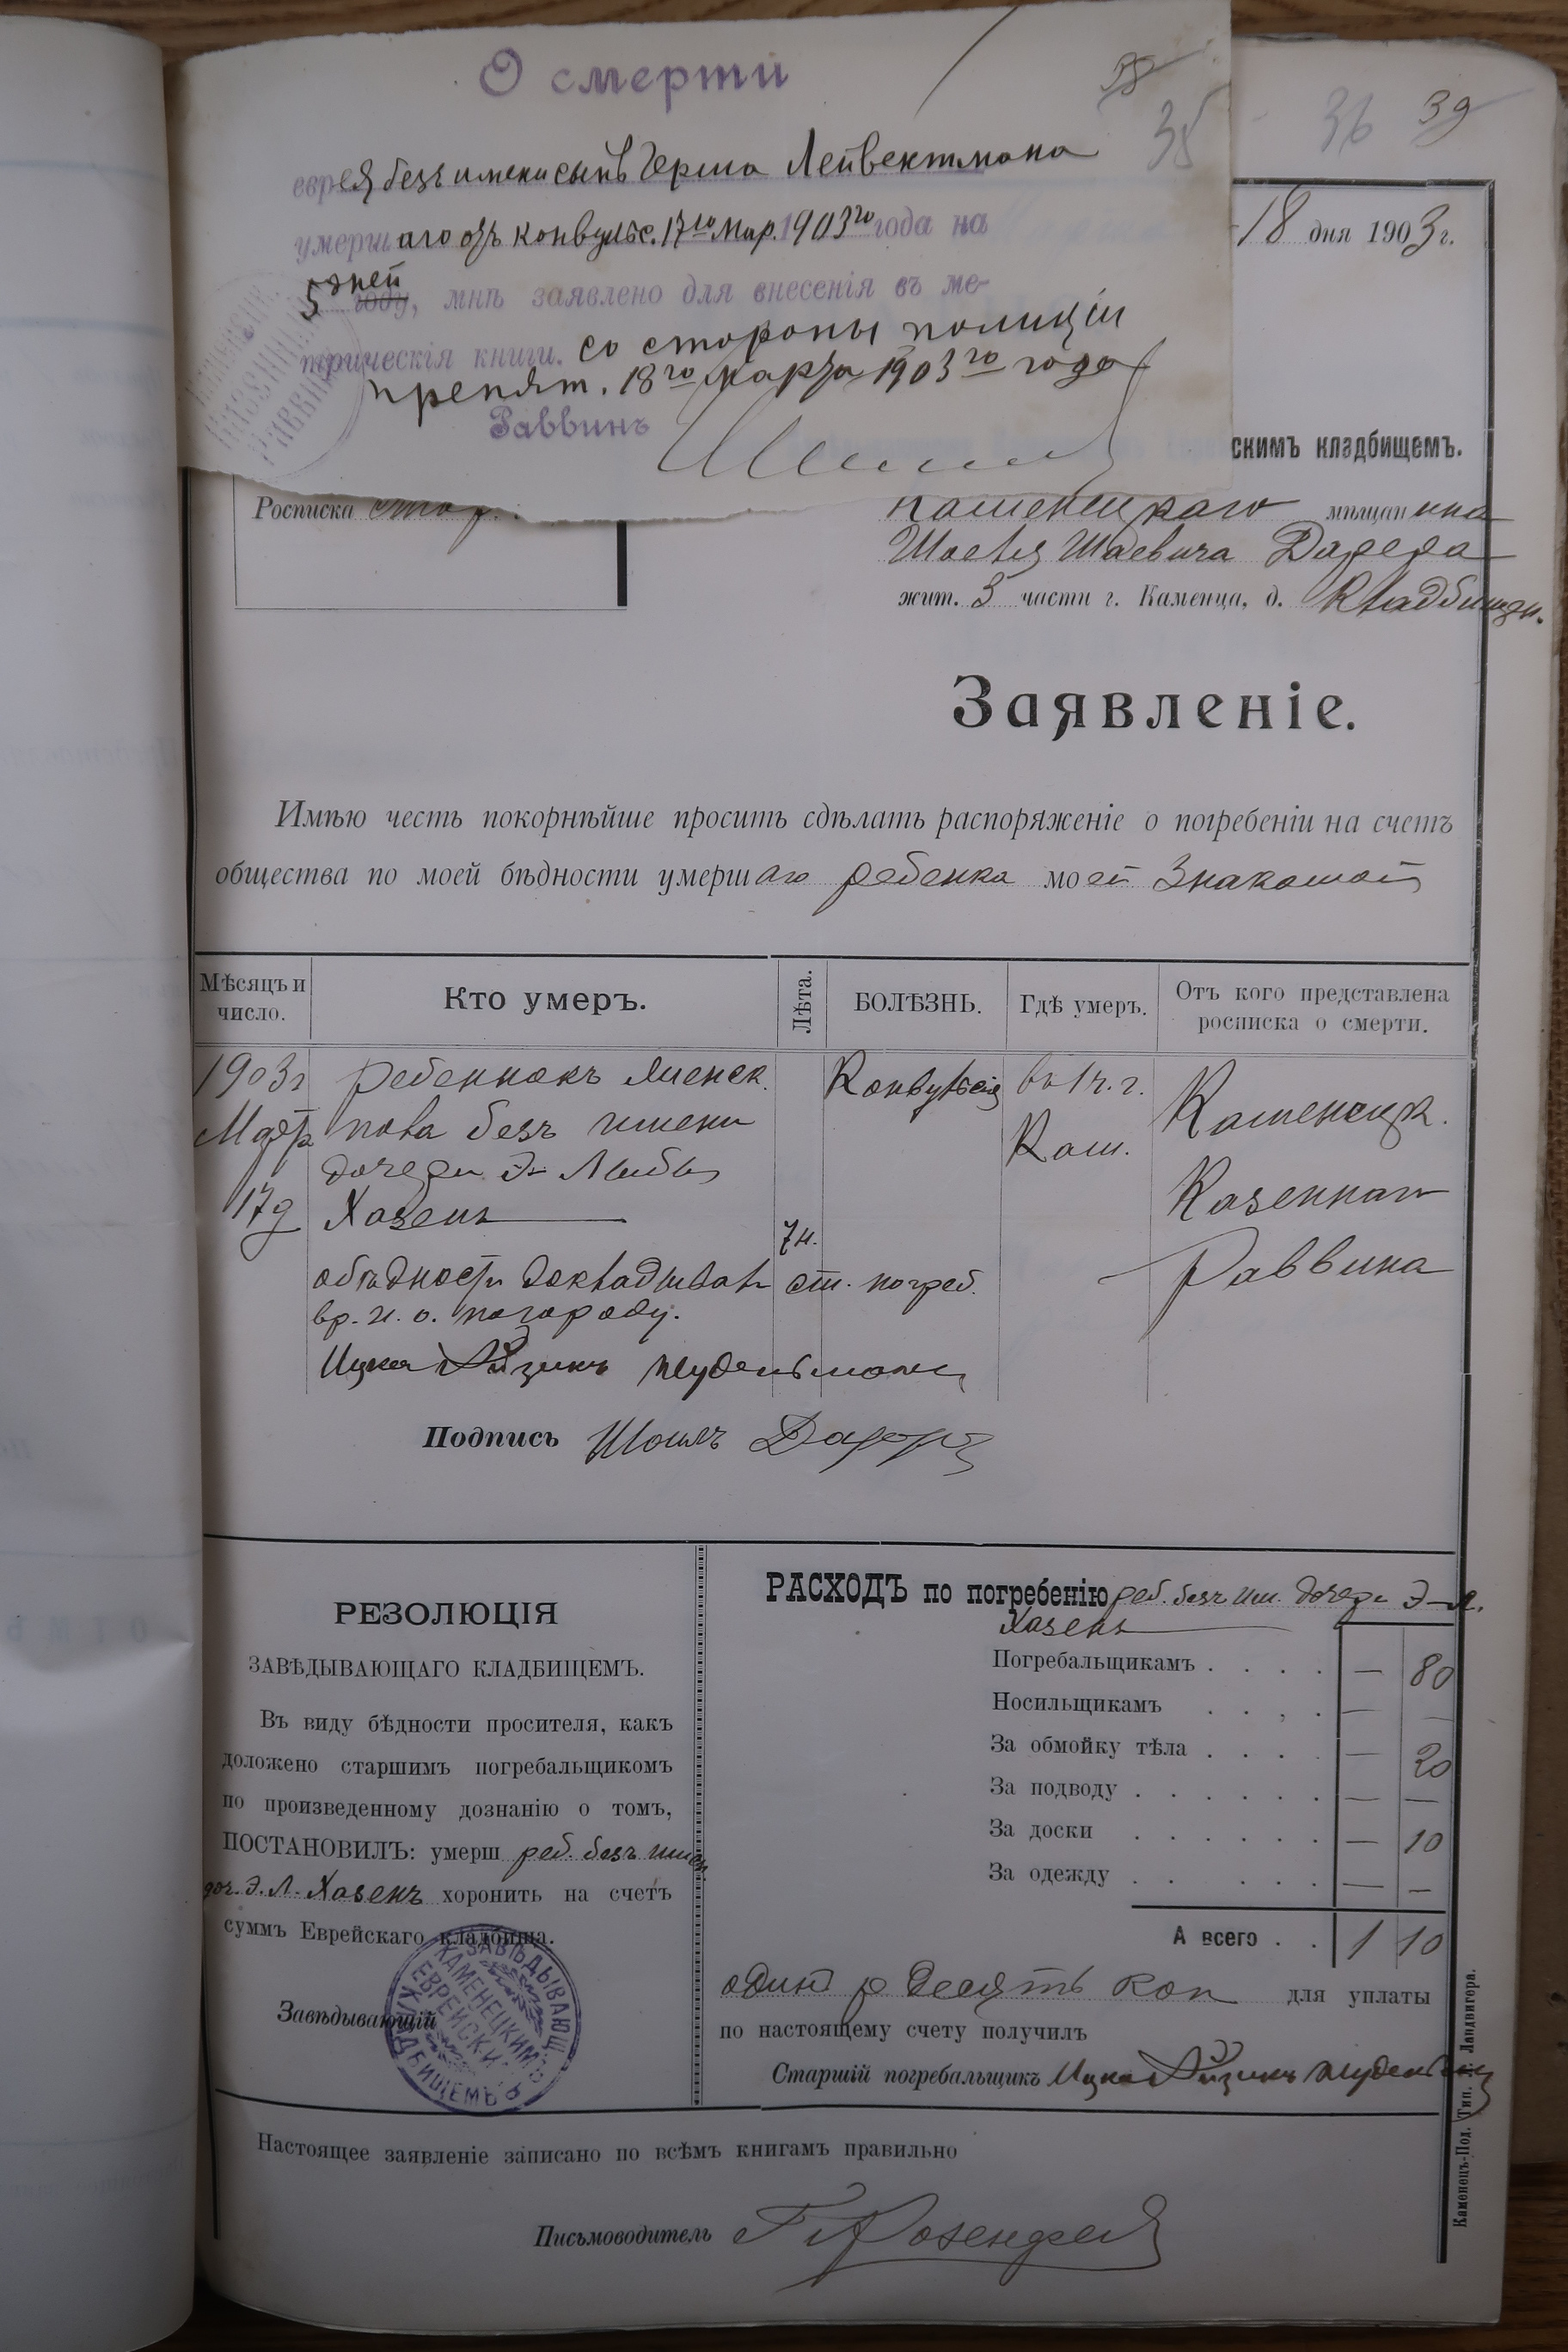 О смерти
38
35
36 39
еврея безъ имени сынъ Герша Лейвектмана
умершаго отъ конвульс. 17го Мар. 1903го года на
5 дней году, мнѣ заявлено для внесенія въ ме-
трическія книги. со стороны полиціи
препят. 18го Марта 1903го года
Раввинъ
18 дня 1903 г.
скимъ кладбищемъ.
Росписка
Каменецкаго мѣщанина
Шаевича
жит. 3 части г. Каменца, д. Кладбищн.
Заявленіе.
Имѣю честь покорнѣйше просить сдѣлать распоряженіе о погребеніи на счетъ
общества по моей бѣдности умершаго ребенка моей Знакомой
Мѣсяцъ и число.
Кто умеръ.
Лѣта.
БОЛѢЗНЬ.
Гдѣ умеръ.
Отъ кого представлена росписка о смерти.
1903 г
Март
17 д
ребеннокъ
пола безъ имени
дочери Э- Лыбы
Хазенъ
7 н.
Конвульсія
въ 1 ч. г.
Кам.
Каменецк.
Казеннаго
Раввина
о бѣдности докладывалъ ст. погреб.
вр. и. о.
Ицко Айзикъ Нудельманъ
Подпись
РЕЗОЛЮЦІЯ
ЗАВѢДЫВАЮЩАГО КЛАДБИЩЕМЪ.
Въ виду бѣдности просителя, какъ
доложено старшимъ погребальщикомъ
по произведенному дознанію о томъ,
ПОСТАНОВИЛЪ: умерш реб. безъ имен
доч. Э. Л. Хазенъ хоронить на счетъ
суммъ Еврейскаго кладбища.
Завѣдывающій
ЗАВѢДЫВАЮЩ КАМЕНЕЦКИМЪ ЕВРЕЙСКИМЪ КЛАДБИЩЕМЪ
РАСХОДЪ по погребенію реб. безъ им. дочери Э-Л.
Хазенъ
Погребальщикамъ . . . . — 80
Носильщикамъ . . , . — —
За обмойку тѣла . . . . — 20
За подводу . . . . . . — —
За доски . . . . . . — 10
За одежду . . . . . — —
А всего . . 1 10
одинъ р десять коп для уплаты
по настоящему счету получилъ
Старшій погребальщикъ Ицко Айзикъ Нудельманъ
Настоящее заявленіе записано по всѣмъ книгамъ правильно
Письмоводитель Г Розенфельд
Каменецъ-Под. Тип. Ландвигера.